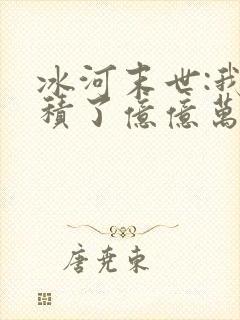 冰河末世:我
積了億億萬
唐堯東